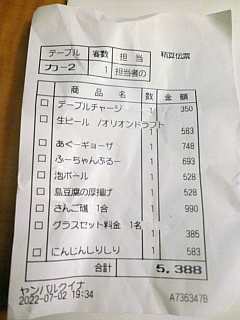 テーブル 客数 担当 精算伝票
カウー2 1 担当者の
商品名 数 金額
□ テーブルチャージ 1 350
□ 生ビール /オリオンドラフト
1 583
□ あぐーギョーザ 1 748
□ ふーちゃんぷるー 1 693
□ 泡ボール 1 528
□ 島豆腐の厚揚げ 1 528
□ さんご礁 1合 1 990
□ グラスセット料金 1名
1 385
□ にんじんしりしり 1 583
合計 5,388
ヤンバルクイナ
2022-07-02 19:34 A736347B